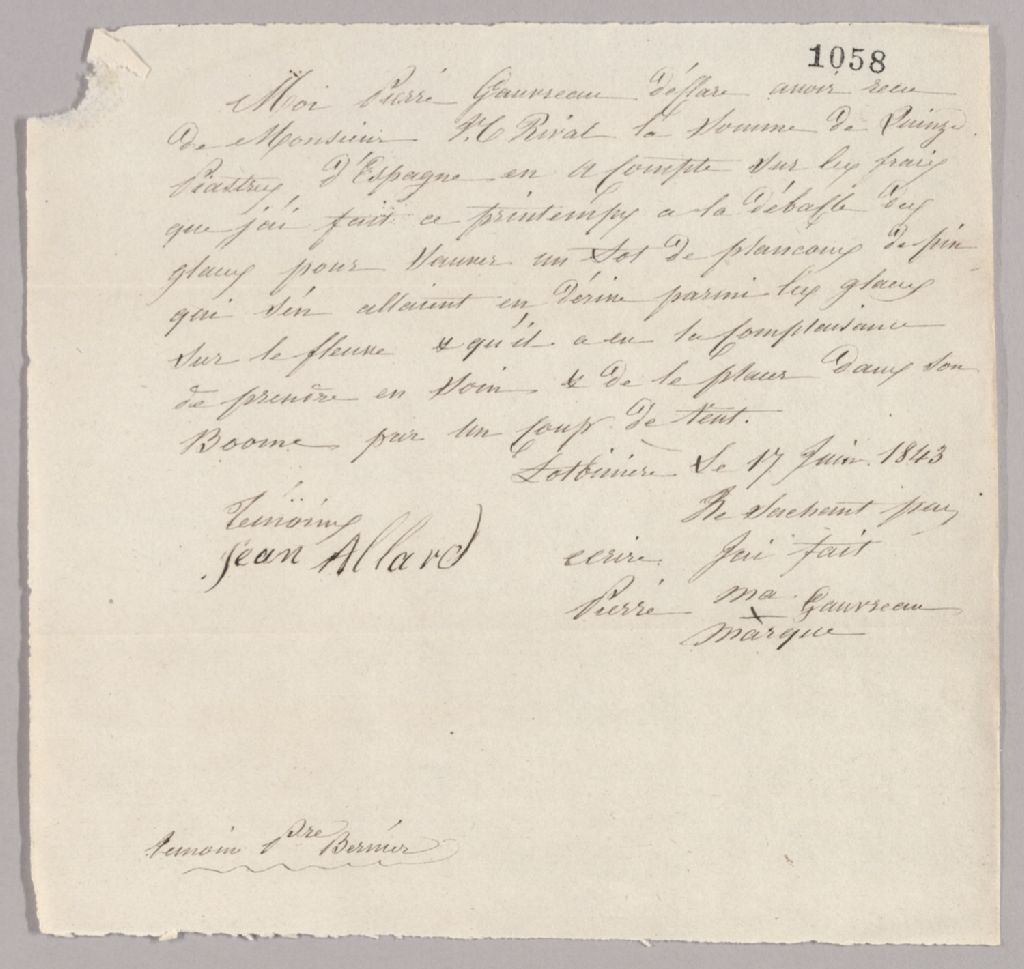 1058
Moi Pierré Gauvreau déclare avoir recu
de Monsieur Rival la somme de Quinze
Piastres d'Espagne en a Compte sur les frais
que j'ai fait ce printemps a la débaſle des
glaces pour sauver un Lot de plancons de pin
qui s'én allaient en dérive parmi les glaces
sur le fleuve & qu'il a eu la Complaisance
de prendre en soin & de le placer dans son
Boome par un Coup de Vent.
Lotbiniere Le 17 Juin 1843
Ne sachant pas
Temoins
Jean Allard
ecrire J'ai fait
Pierré ma Gauvreau
x
marque
temoin Pre Bernier